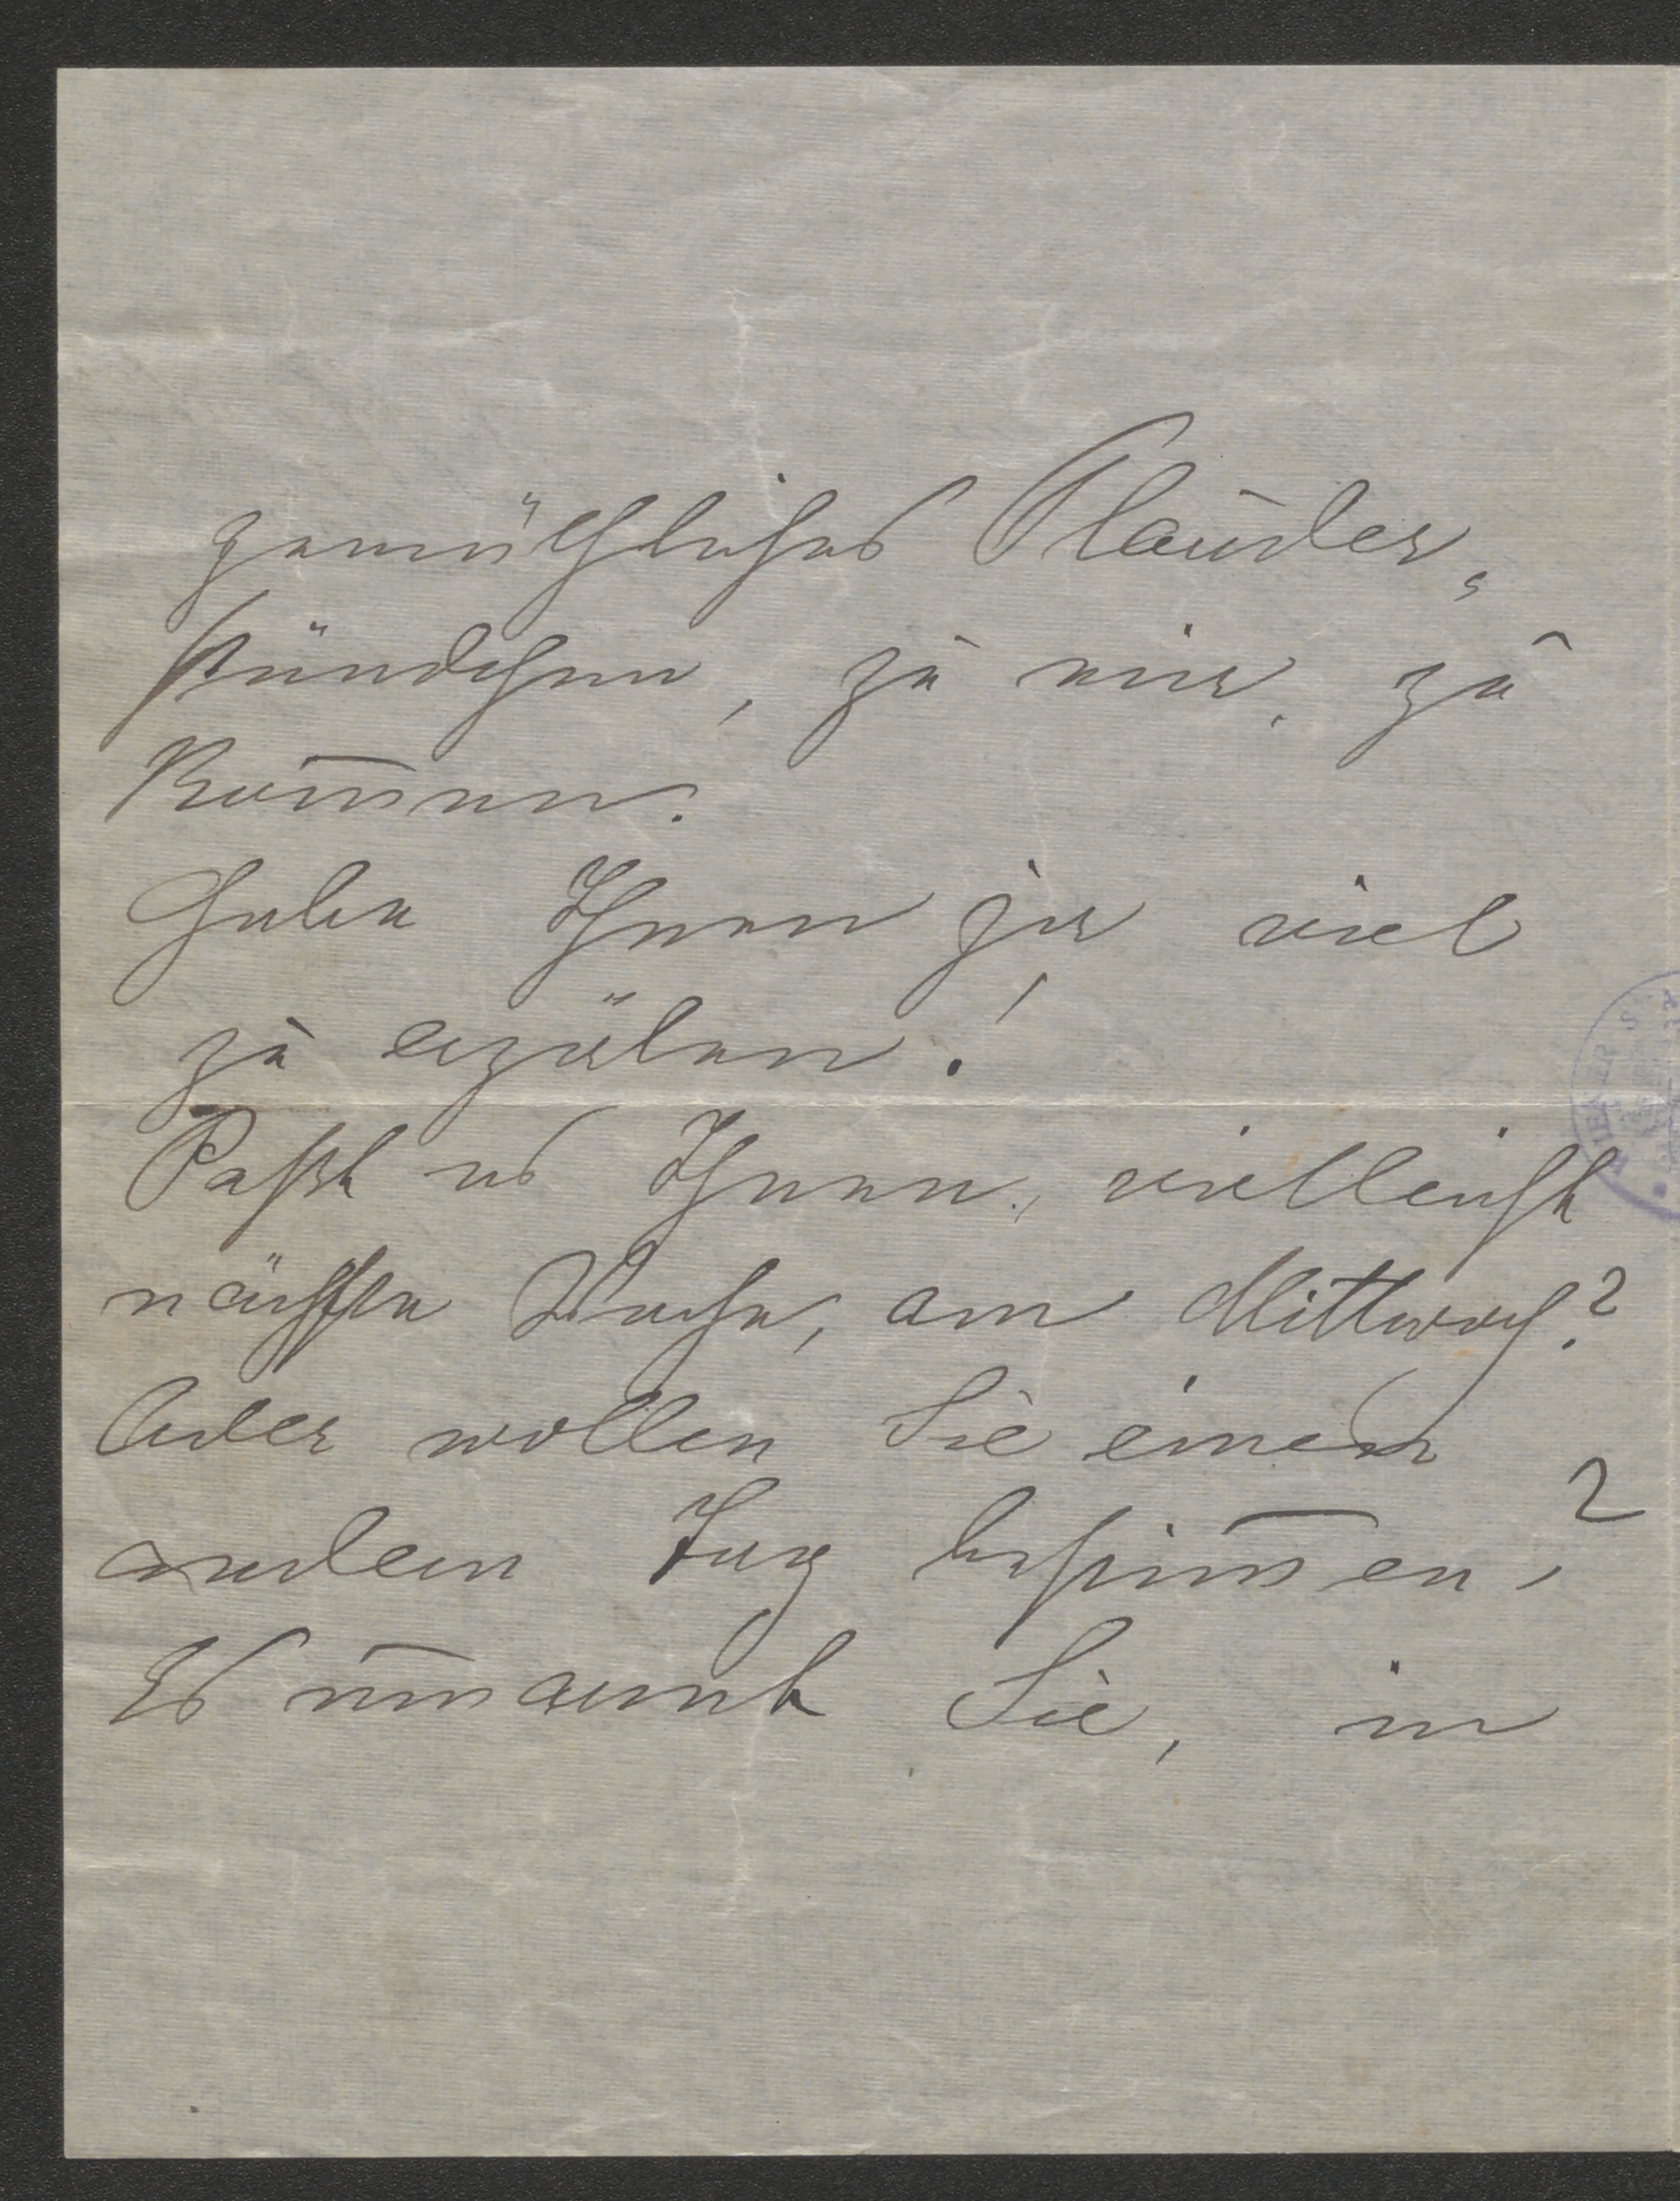 gemüthliches Plauder-
stündchen, zu mir, zu
kom̅en.
Habe Ihnen ja viel
zu erzälen!
Paßt es Ihnen, vielleicht
nächste Woche, am Mittwoch?
Oder wollen Sie einen
andern Tag bestim̅en?
Es umarmt Sie, in